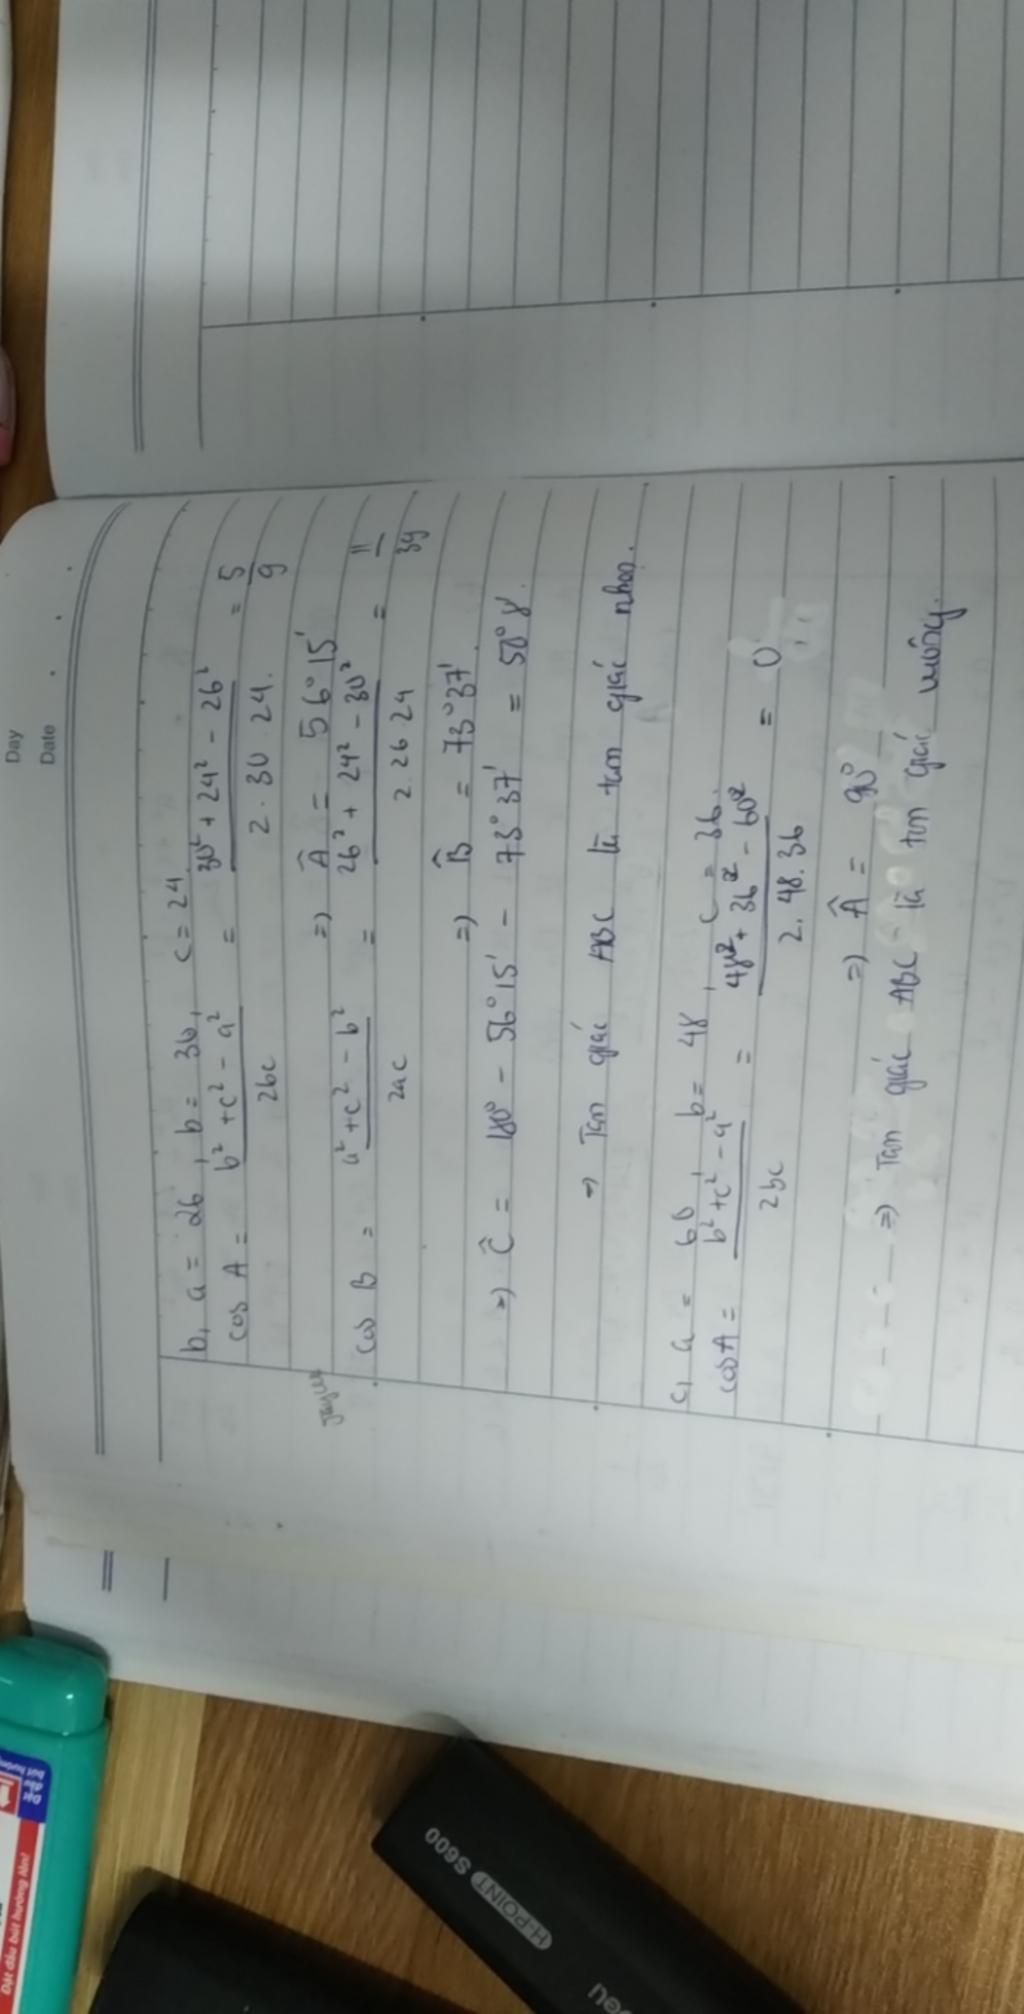 Day
Date
b, a = 26, b = 30, c = 24
cos A = b² + c² - a² / 2bc = 30² + 24² - 26² / 2.30.24. = 5 / 9
=) Â = 56°15'
cos B = a² + c² - b² / 2ac = 26² + 24² - 30² / 2.26.24 = 11 / 39
=) B̂ = 73°37'
=) Ĉ = 180° - 56°15' - 73°37' = 50°8'.
=> Tam giác ABC là tam giác nhọn.
c, a = 60, b = 48, c = 36.
cos A = b² + c² - a² / 2bc = 48² + 36² - 60² / 2.48.36 = 0
=) Â = 90°
=) Tam giác ABC là tam giác vuông.
H-POINT S600
Đặt đầu bút hướng lên!